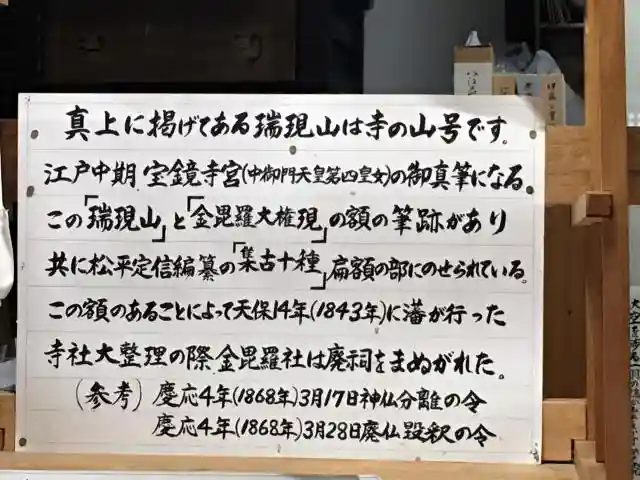 真上に掲げてある瑞現山は寺の山号です。
江戸中期、宝鏡寺宮(中御門天皇第四皇女)の御真筆になる
この「瑞現山」と「金毘羅大権現」の額の筆跡があり
共に松平定信編纂の「集古十種」扁額の部にのせられている。
この額のあることによって天保14年(1843年)に藩が行った
寺社大整理の際金毘羅社は廃祠をまぬがれた。
(参考) 慶応4年(1868年)3月17日神仏分離の令
慶応4年(1868年)3月28日廃仏毀釈の令